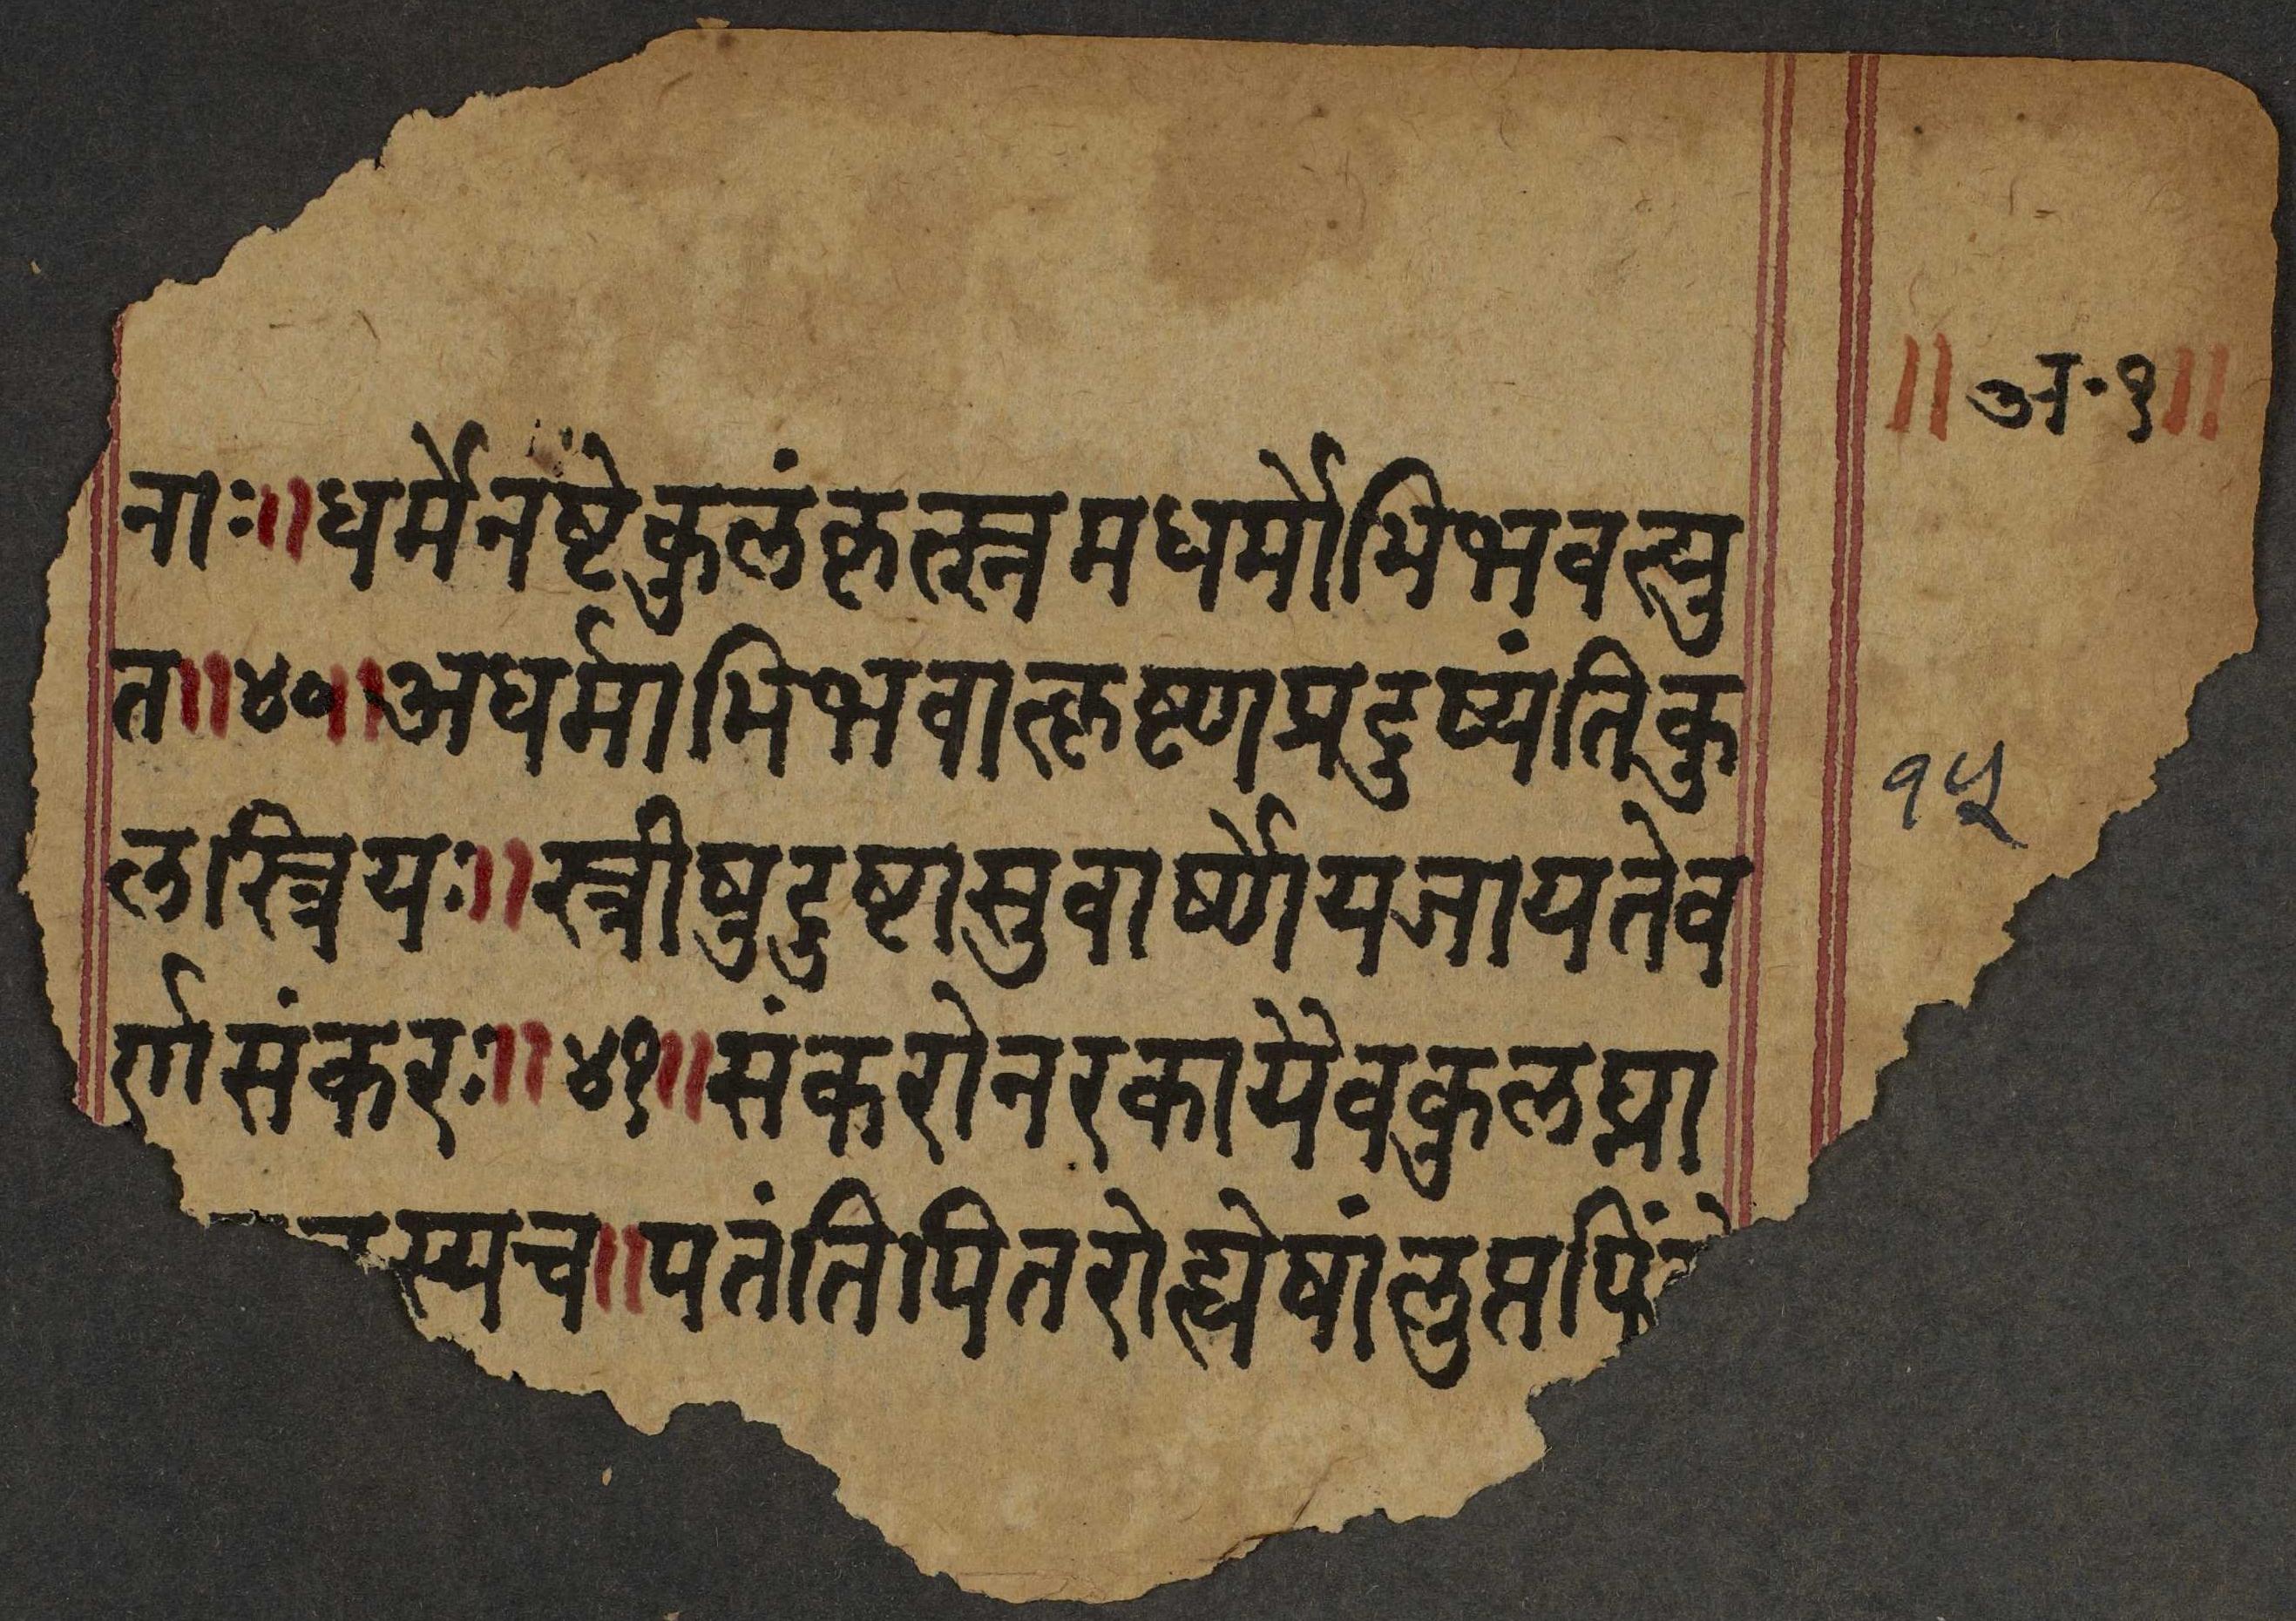 ॥अ॰१॥
नाः॥धर्मेनष्टेकुलंकृत्स्नमधर्मोभिभवत्यु
त॥४०॥अधर्माभिभवात्कृष्णप्रदुष्यंतिकु
१५
लस्त्रियः॥स्त्रीषुदुष्टासुवार्ष्णेयजायतेव
र्णसंकरः॥४१॥संकरोनरकायैवकुलघ्ना
स्यच॥पतंतिपितरोह्येषांलुप्तपिं